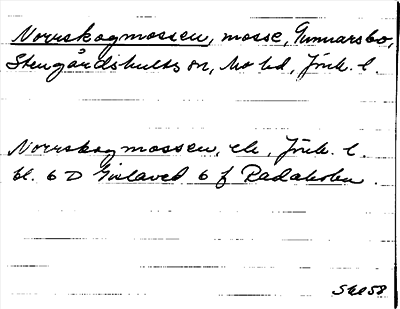 Norrskogmossen, mosse, Gunnarsbo,
Stengårdshults sn, Mo hd, Jönk. l.
Norrskogmossen, ek, Jönk. l.
bl. 6 D Gislaved 6 f Radaholm.
SAE58